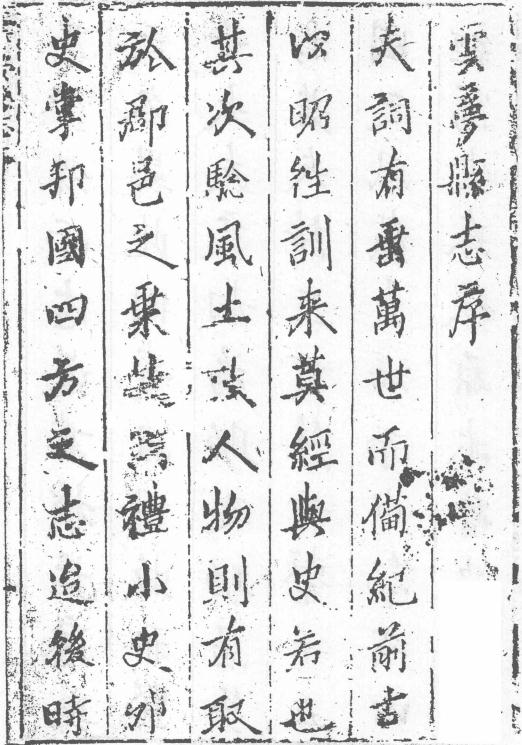 雲夢縣志序
夫詞有垂萬世而備紀前書
以昭徃訓来莫經與史若也
其次驗風土攷人物則有取
於郡邑之乗禮小史外
史掌邦國四方之志迨後時